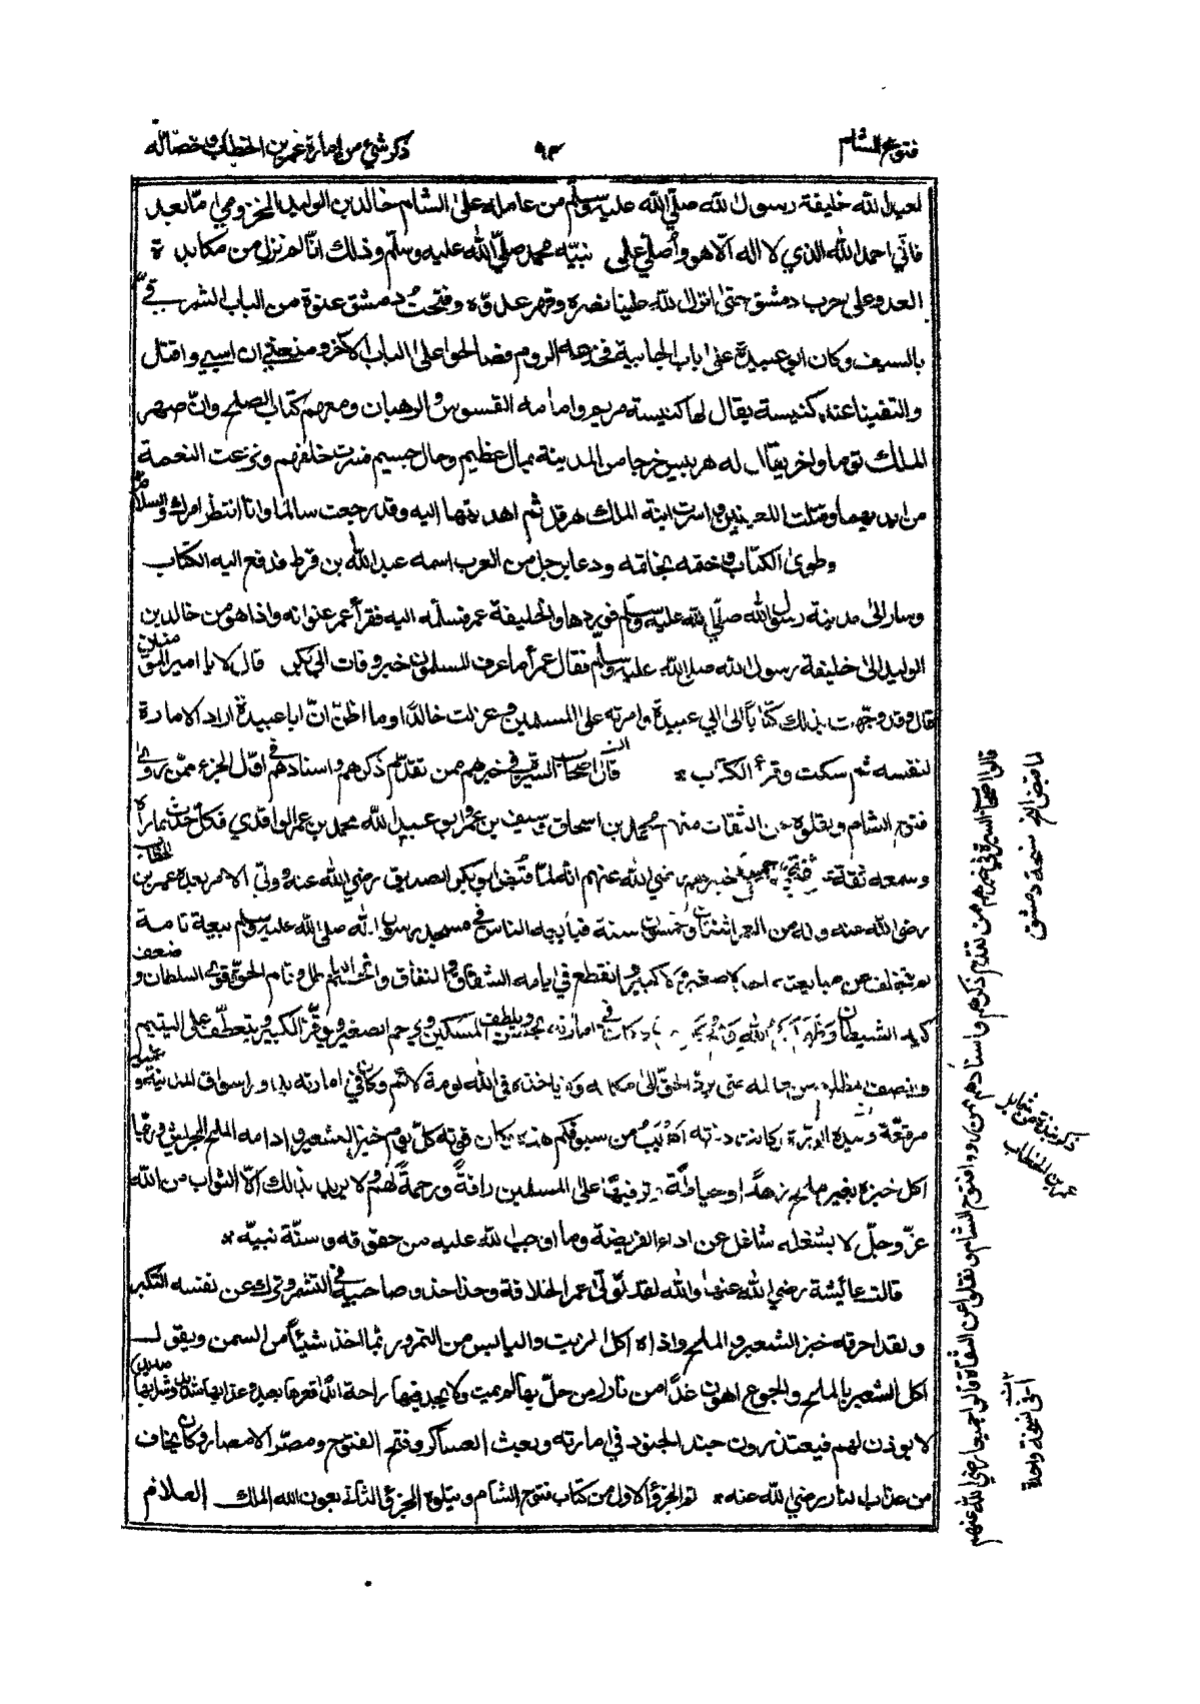 فتوح الشام
٩٣
ذكر شيء من إمارة عمر بن الخطاب وخصائله
لعبد الله خليفة رسول الله صلى الله عليه وسلم من عامله على الشام خالد بن الوليد المخزومي اما بعد
فاني احمد الله الذي لا اله الا هو وأصلي على نبيه محمد صلى الله عليه وسلم وذلك انا لم نزل من مكابدة
العدو على حرب دمشق حتى انزل الله علينا نصره وقهر عدوه وفتحت دمشق عنوة من الباب الشرقي
بالسيف وكان ابو عبيدة على باب الجابية فخدعه الروم فصالحوا على الباب الآخر ومنعني ان اسبي واقتل
والتقينا عند كنيسة يقال لها كنيسة مريم وامامه القسوس والرهبان ومعهم كتاب الصلح وان صهر
الملك توما واخر يقال له هربيس خرجا من المدينة بمال عظيم وحال جسيم فسرت خلفهم ونزعت النعمة
من ايديهما وقتلت اللعينين واسرت ابنة الملك هرقل ثم اهديتها اليه وقد رجعت سالما وانا انتظر امرك والسلام
وطوى الكتاب وختمه بخاتمه ودعا برجل من العرب اسمه عبد الله بن قرط فدفع اليه الكتاب
وسار الى مدينة رسول الله صلى الله عليه وسلم فوردها والخليفة عمر فسلمه اليه فقرأ عمر عنوانه واذا هو من خالد بن
الوليد الى خليفة رسول الله صلى الله عليه وسلم فقال عمر أما عرف المسلمون خبر وفات ابي بكر قال لا يا امير المؤمنين
قال وقد وجهت بذلك كتابا الى ابي عبيدة وامرته على المسلمين وعزلت خالدا وما اظن ان ابا عبيدة اراد الامارة
لنفسه ثم سكت وقرء الكتاب * قال اصحاب السير في خبرهم ممن تقدم ذكرهم واسنادهم في اول الجزء ممن روى
فتوح الشام ونقلوه عن الثقات منهم محمد بن اسحاق وسيف بن عمر وابو عبد الله محمد بن عمر الواقدي فكل حدث بما رآه
وسمعه ثقة عن ثقة جميعا خبرهم رضي الله عنهم انه لما قبض ابو بكر الصديق رضي الله عنه ولي الامر بعده عمر بن الخطاب
رضي الله عنه وله من العمر اثنتان وخمسون سنة فبايعه الناس في مسجد رسول الله صلى الله عليه وسلم بيعة تامة
لم يتخلف عن مبايعته احد لا صغير ولا كبير وانقطع في ايامه الشقاق والنفاق وانحسم الباطل وقام الحق وقوي السلطان وضعف
كيد الشيطان وظهر امر الله وهم كارهون وكان في امارته يجالس ويلطف المسكين ويرحم الصغير ويوقر الكبير ويتعطف على اليتيم
وينصف المظلوم من ظالمه حتى يرد الحق الى مكانه ولا ياخذه في الله لومة لائم وكان في امارته يدور اسواق المدينة وعليه
مرقعة وبيده الدرة وكانت درته اهيب من سيوفكم هذه وكان قوته كل يوم خبز الشعير وادامه الملح الجريش وربما
اكل خبزه بغير ملح زهدا واحياطة وترفيها على المسلمين رافة ورحمة لهم ولا يريد بذلك الا الثواب من الله
عز وجل لا يشغله شاغل عن اداء الفريضة وما اوجب الله عليه من حقوقه وسنة نبيه *
قالت عائيشة رضي الله عنها والله لقد تولى عمر الخلافة وحذا حذو صاحبيه في التشمر وترك عن نفسه التكبر
ولقد احرقه خبز الشعير والملح واذاه اكل الزيت واليابس من التمر وربما اخذ شيئا من السمن ويقول
اكل الشعير بالملح والجوع اهون غدا من نار من حل بها لم يمت ولا يجد فيها راحة ابدا قعرها بعيد وعذابها شديد وشرابها صديد
لا يوذن لهم فيعتذرون جند الجنود في امارته وبعث العساكر وفتح الفتوح ومصر الامصار وكان يخاف
من عذاب النار رضي الله عنه * تم الجزؤ الاول من كتاب فتوح الشام ويتلوه الجزؤ الثاني بعون الله الملك العلام
قالوا اصحاب السيرة في خبرهم ممن تقدم ذكرهم واسنادهم ممن رووا فتوح الشام ونقلوا عن الثقاة قالوا جميعا رضي الله عنهم
لما قبض الخ نسخة دمشق
ذكر نبذة من خصائل عمر بن الخطاب
في نسخة واحدة